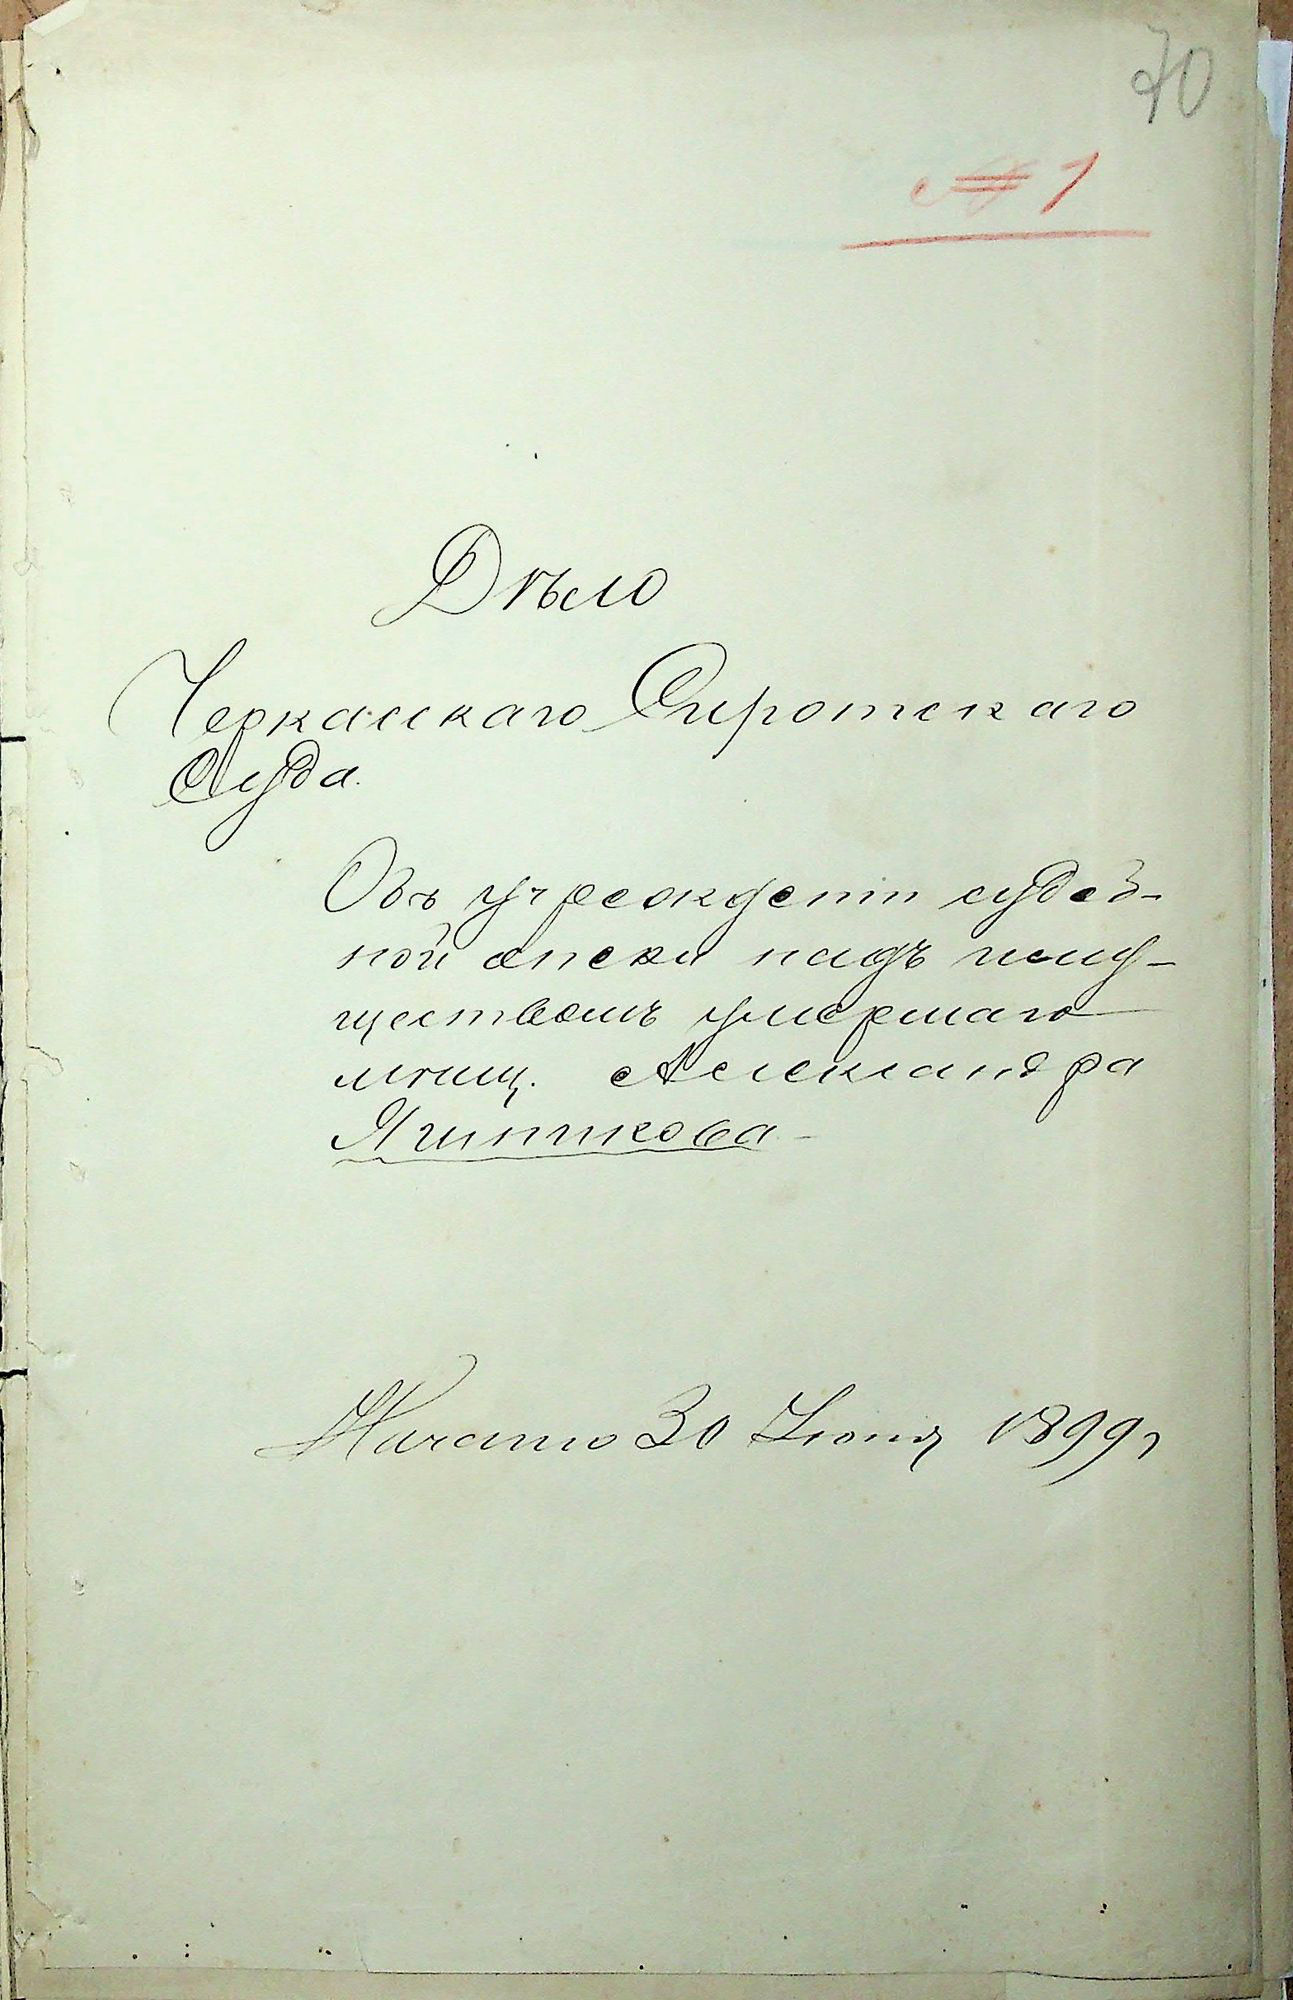 70
№ 1
Дѣло
Черкасскаго Сиротскаго
Суда.
Объ учрежденіи судеб-
ной опеки надъ иму-
ществомъ умершаго
мѣщ. Александра
Ячникова
Начато 30 Іюня 1899 г